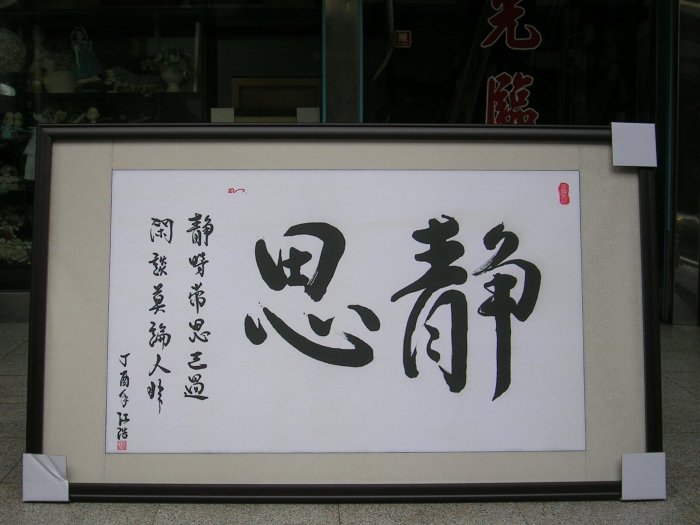 光臨
静思
静時常思己過
閑談莫論人非
丁酉年